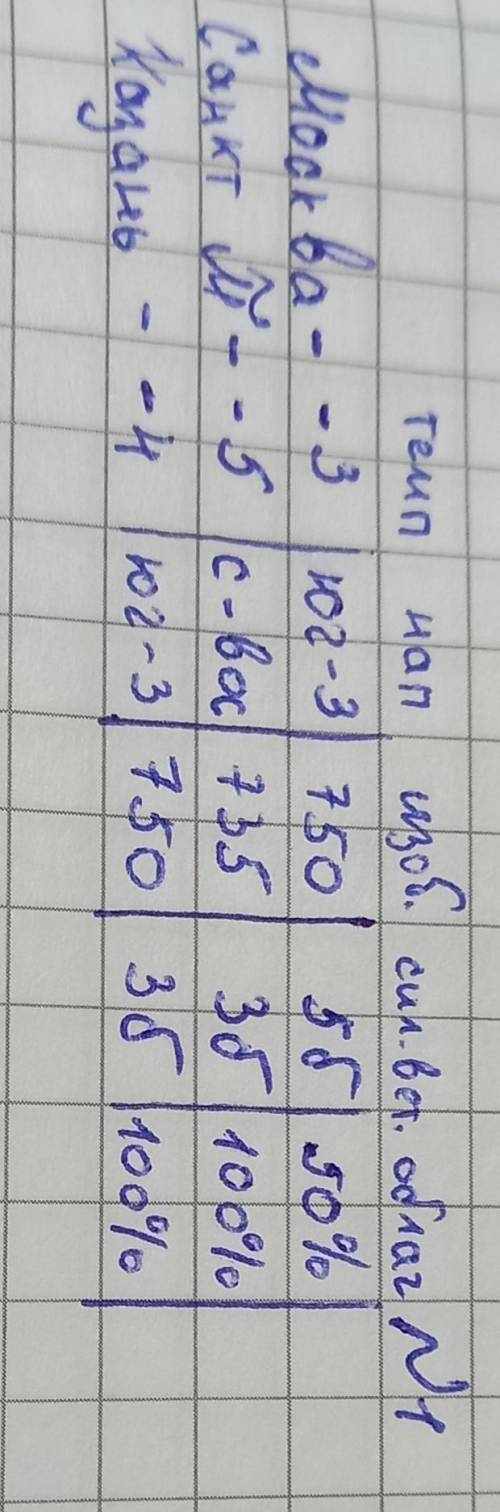 темп нап изоб. сил.вет. облаг N1
Москва - -3 юг-з 750 5б 50%
Санкт П - -5 с-вос 735 3б 100%
Казань - -4 юг-з 750 3б 100%